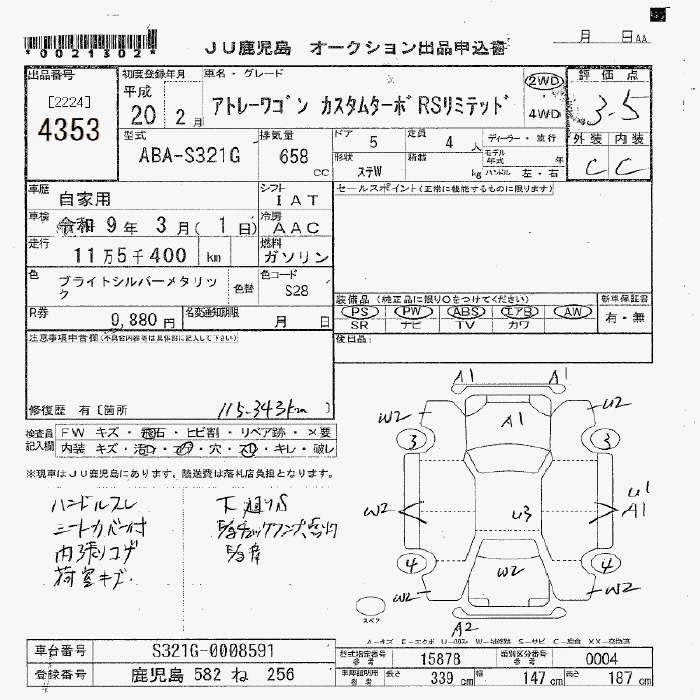 *0021302*
JU鹿児島 オークション出品申込書
月 日 AA
出品番号
[2224]
4353
初度登録年月
平成
20 2月
車名・グレード
アトレーワゴン カスタムターボRSリミテッド
2WD
4WD
評価点
3.5
外装 内装
C C
型式
ABA-S321G
排気量
658 CC
ドア 5
定員 4 人
ディーラー・並行
形状 ステW
積載 kg
モデル年式 年
ハンドル 左・右
車歴 自家用
シフト IAT
車検 令和 9年 3月( 1日)
冷房 AAC
走行 11万5千400 km
燃料 ガソリン
色 ブライトシルバーメタリック
色替
色コード S28
R券 9,880円
名変通知期限 月 日
セールスポイント(正常に機能するものに限ります)
装備品(純正品に限り○をつけてください)
新車保証書
PS PW ABS エアB AW
SR ナビ TV カワ
有・無
後日品:
注意事項申告欄(不具合内容等は具体的に記入して下さい)
修復歴 有〔箇所 〕
115-343km
検査員記入欄
FW キズ・飛石・ヒビ割・リペア跡・×要
内装 キズ・汚レ・コゲ・穴・スレ・キレ・破レ
※現車はJU鹿児島にあります。陸送費は落札店負担となります。
ハンドルスレ
シートカバー付
内張りコゲ
荷室キズ
下廻りS
A1 A1
W2 A1 U2
3 3
W2 U3 U1
A1
4 4
W2 W2 W2
A2
スペア
車台番号 S321G-0008591
登録番号 鹿児島 582 ね 256
型式指定番号 参考 15878
類別区分番号 参考 0004
車庫証明用 参考 長さ 339 cm 幅 147 cm 高さ 187 cm